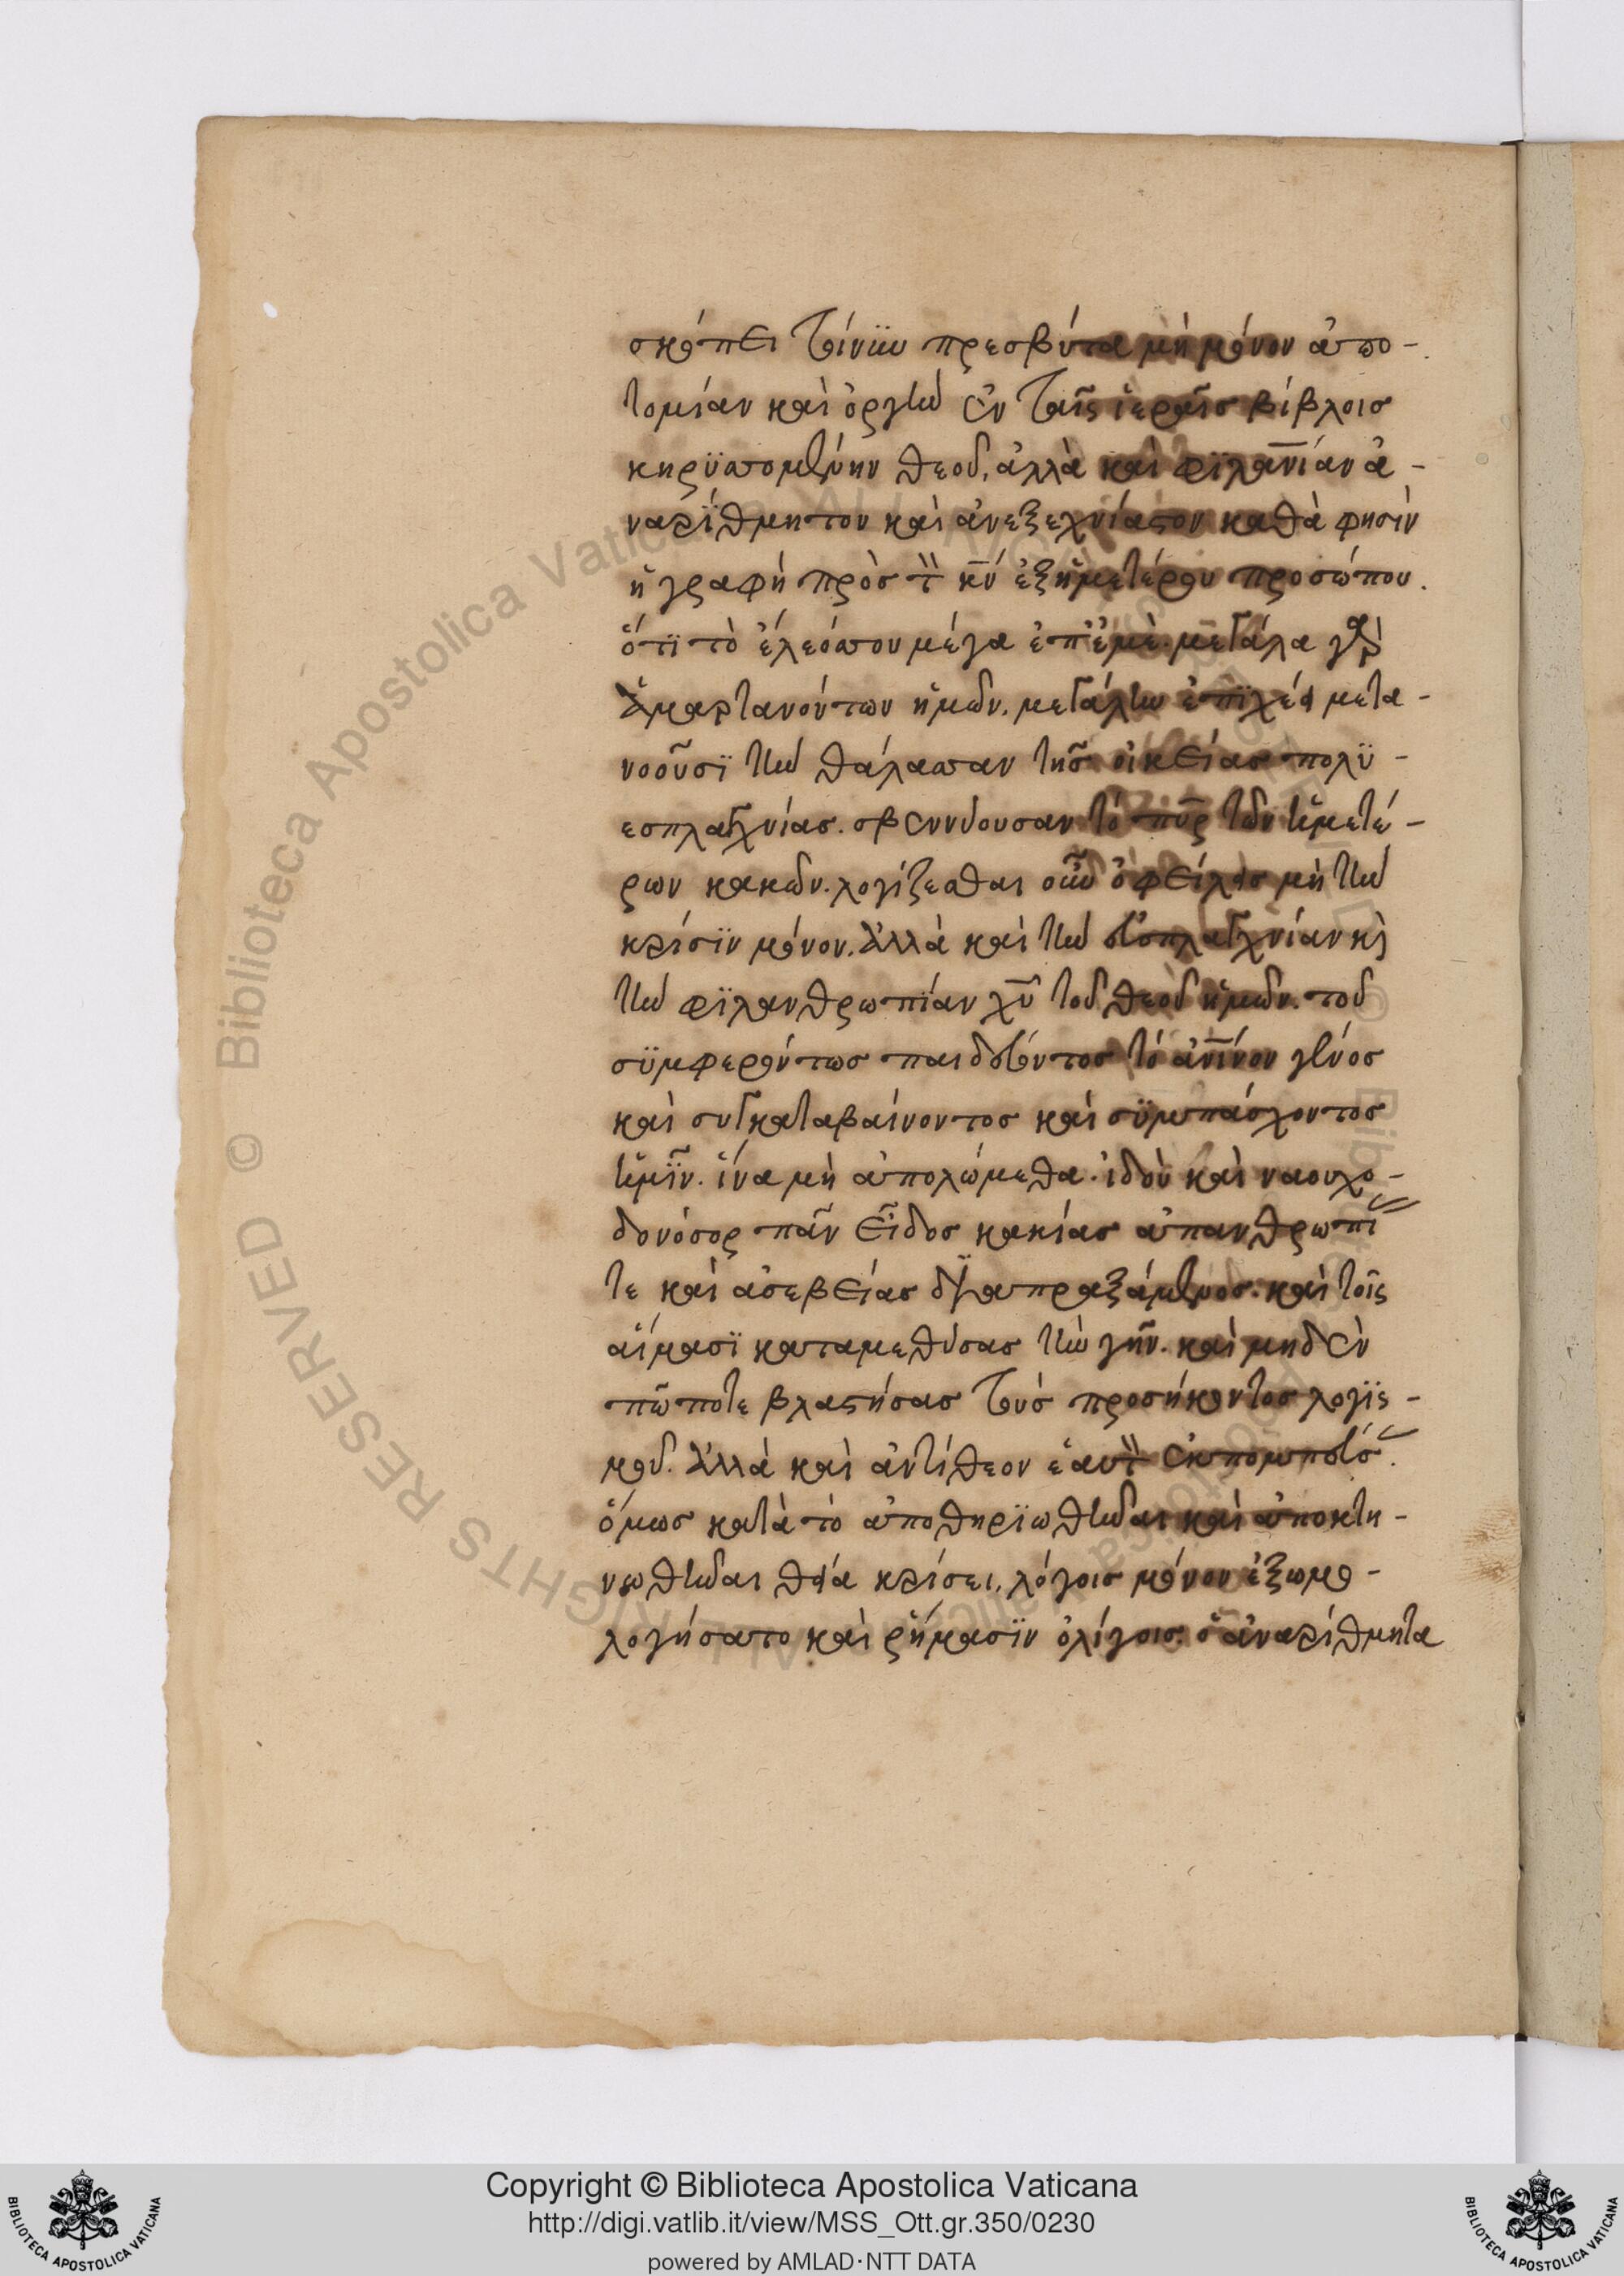 σκόπει τοίνυν πρεσβύτα μὴ μόνον ἀπο-
τομίαν καὶ ὀργὴν ἐν ταῖς ἱεραῖς βίβλοις
κηρϋττομένην θεοῦ, ἀλλὰ καὶ φϊλανίαν ἀ-
ναρΐθμητον καὶ ἀνεξεχνίαστον καθά φησὶν
ἡ γραφὴ πρὸς τὸν κν ἐξ ἡμετέρου προσώπου.
ὅτϊ τὸ ἔλεός σου μέγα ἐπ ἐμὲ. μεγάλα γὰρ
ἁμαρτανόντων ἡμῶν. μεγάλην ἐπϊχέει μετα-
νοοῦσϊ τὴν θάλασσαν τῆς οἰκείας πολϋ-
εσπλαγχνίας. σβεννύουσαν τὸ πῦρ τῶν ἡμετέ-
ρων κακῶν. λογίζεσθαι οὖν ὀφείλεις μὴ τὴν
κρίσϊν μόνον. ἀλλὰ καὶ τὴν εὐσπλαγχνίαν κὶ
τὴν φϊλανθρωπΐαν χῦ τοῦ θεοῦ ἡμῶν. τοῦ
σϋμφερόντως παιδεύοντος τὸ ἀνϊνον γένος
καὶ συγκαταβαίνοντος καὶ σϋμπάσχοντος
ἡμῖν. ἵνα μὴ ἀπολώμεθα. ἰδοὺ καὶ ναουχο-
δονόσορ πᾶν εἶδος κακίας ἀπανθρωπί
τε καὶ ἀσεβείας διαπραξάμενος. καὶ τοῖς
αἵμασϊ καταμεθύσας τὴν γῆν. καὶ μηδὲν
πώποτε βλαστήσας τοῦ προσήκοντος λογϊς-
μοῦ. ἀλλὰ καὶ ἀντίθεον ἑαυτὸν ἐκπομπεύσ.
ὅμως κατὰ τὸ ἀποθηρϊωθῆναι καὶ ἀποκτη-
νωθῆναι θεία κρίσει, λόγοις μόνον ἐξωμο-
λογήσατο καὶ ῥήμασϊν ὀλίγοις. ὁ ἀναρίθμητα
Copyright © Biblioteca Apostolica Vaticana
http://digi.vatlib.it/view/MSS_Ott.gr.350/0230
powered by AMLAD·NTT DATA
BIBLIOTECA APOSTOLICA VATICANA
BIBLIOTECA APOSTOLICA VATICANA